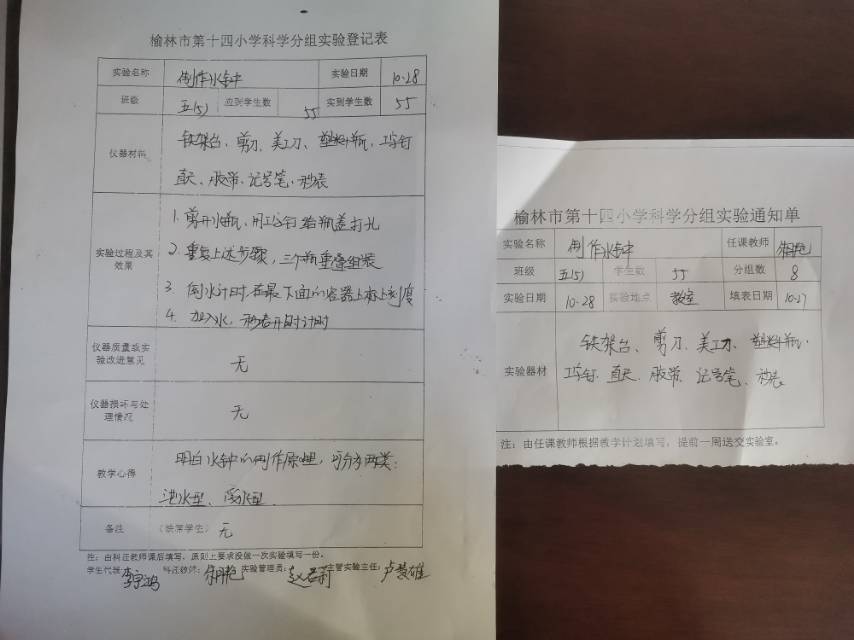 榆林市第十四小学科学分组实验登记表
实验名称 制作水钟 实验日期 10-28
班级 五(5) 应到学生数 55 实到学生数 55
仪器材料 铁架台、剪刀、美工刀、塑料瓶、工字钉
直尺、胶带、记号笔、秒表
实验过程及其效果 1. 剪开水瓶,用工字钉给瓶盖打孔
2. 重复上述步骤,三个瓶重叠组装
3. 倒水计时,在最下面的容器上标上刻度
4. 加入水,秒表开始计时
仪器质量或实验改进意见 无
仪器损坏与处理情况 无
教学心得 明白水钟的制作原理,可分为两类:
泄水型、受水型
备注 (缺席学生) 无
注:由科任教师课后填写,原则上要求没做一次实验填写一份。
学生代表: 科任教师: 实验管理员: 主管实验主任:卢慧雄
榆林市第十四小学科学分组实验通知单
实验名称 制作水钟 任课教师
班级 五(5) 学生数 55 分组数 8
实验日期 10-28 实验地点 教室 填表日期 10-27
实验器材 铁架台、剪刀、美工刀、塑料瓶、
工字钉、直尺、胶带、记号笔、秒表
注:由任课教师根据教学计划填写,提前一周送交实验室。